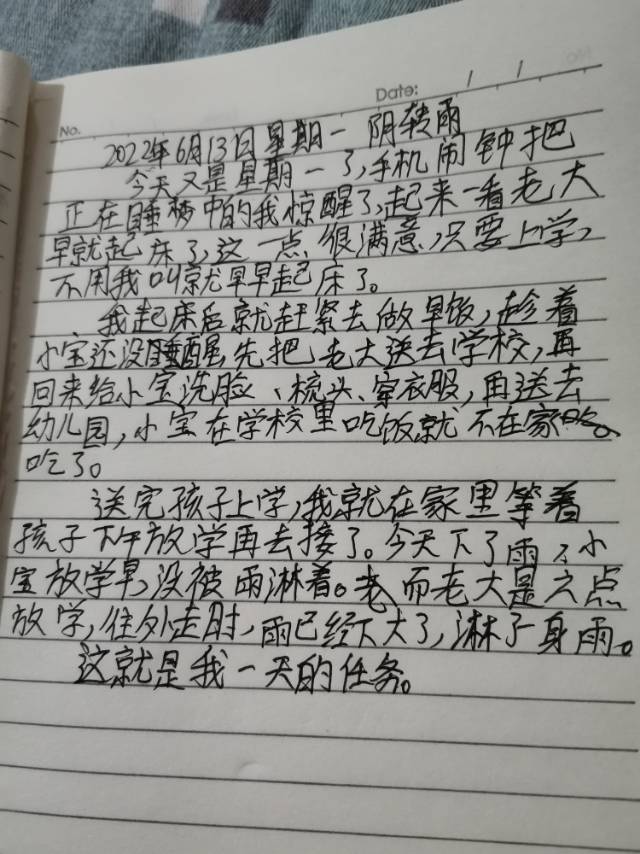 No.
Date: / /
2022年6月13日星期一 阴转雨
今天又是星期一了,手机闹钟把
正在睡梦中的我惊醒了,起来一看老大
早就起床了,这一点很满意,只要上学,
不用我叫就早早起床了。
我起床后就赶紧去做早饭,趁着
小宝还没睡醒,先把老大送去学校,再
回来给小宝洗脸、梳头、穿衣服,再送去
幼儿园,小宝在学校里吃饭就不在家
吃了。
送完孩子上学,我就在家里等着
孩子下午放学再去接了。今天下了雨,小
宝放学早,没被雨淋着。而老大是六点
放学,往外走时,雨已经下大了,淋了一身雨。
这就是我一天的任务。